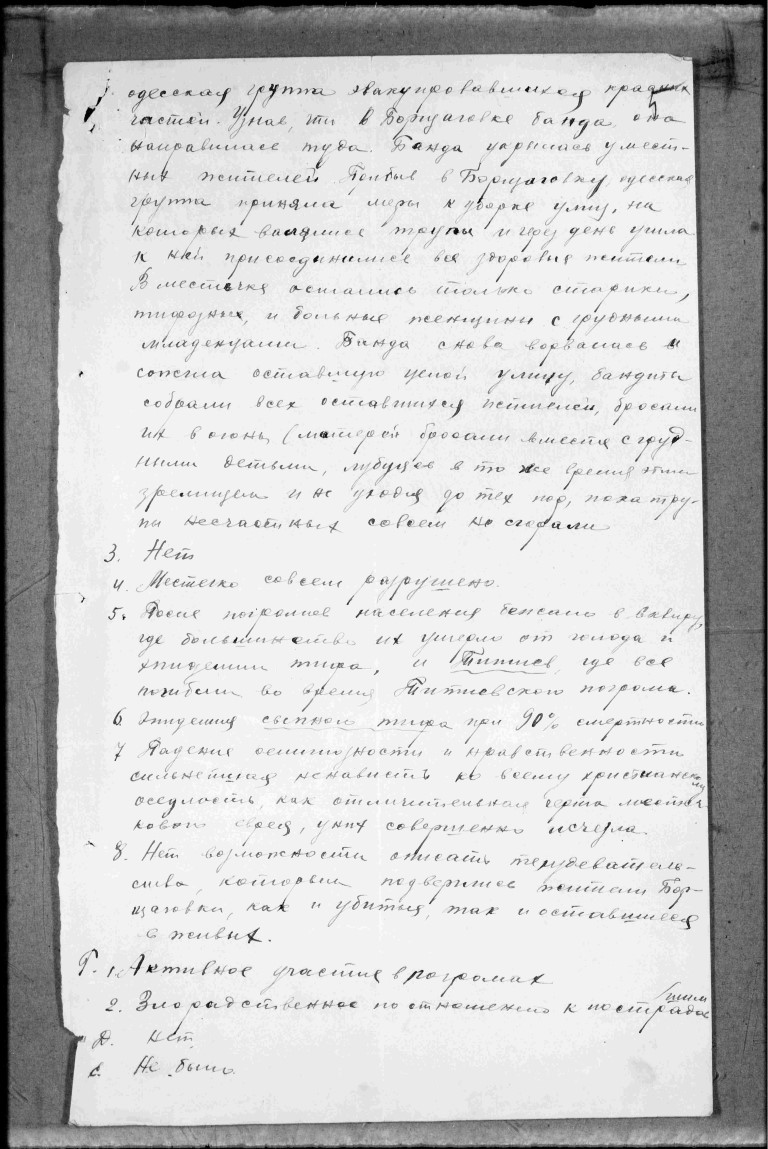 одесская группа эвакуировавшихся красных
частей. Узнав, что в Борщаговке банда, она
направилась туда. Банда укрылась у мест-
ных жителей. Прибыв в Борщаговку, одесская
группа приняла меры к уборке улиц, на
которых валялись трупы и через день ушла
к ней присоединились все здоровые жители
В местечке остались только старики,
тифозные, и больные женщины с грудными
младенцами. Банда снова ворвалась и
сожгла оставшую целой улицу, бандиты
собрали всех оставшихся жителей, бросали
их в огонь (матерей бросали вместе с груд-
ными детьми, любуясь в то же время этим
зрелищем и не уходя до тех пор, пока тру-
пы несчастных совсем не сгорали
3. Нет
4. Местечко совсем разрушено.
5. После погромное население бежало в Сквиру,
где большинство их умерло от голода и
эпидемии тифа, и Титиев, где все
погибли во время Титиевского погрома.
6. Эпидемия сыпного тифа при 90% смертности
7. Падение религиозности и нравственности
сильнейшая ненависть ко всему христианскому
оседлость, как отличительная черта местеч-
кового еврея, у них совершенно исчезла.
8. Нет возможности описать
которым подверглись жители Бор-
щаговки, как и убитые, так и оставшиеся
в живых.
Г. 1. Активное участие в погромах
2. Злорадственное по отношению к пострадав
шим
Д. Нет
Е. Не было